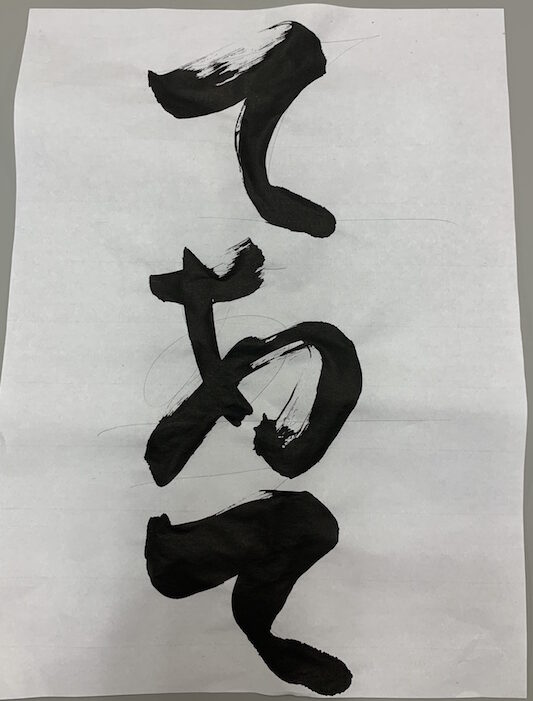 てあて